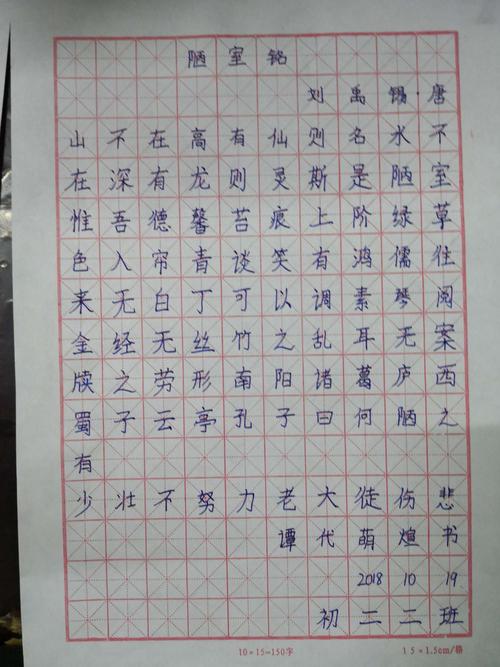 陋室铭
刘禹锡·唐
山不在高有仙则名水不
在深有龙则灵斯是陋室
惟吾德馨苔痕上阶绿草
色入帘青谈笑有鸿儒往
来无白丁可以调素琴阅
金经无丝竹之乱耳无案
牍之劳形南阳诸葛庐西
蜀子云亭孔子曰何陋之
有
少壮不努力老大徒伤悲
谭代萌煌书
2018 10 19
初二二班
10×15=150字 15×1.5cm/格